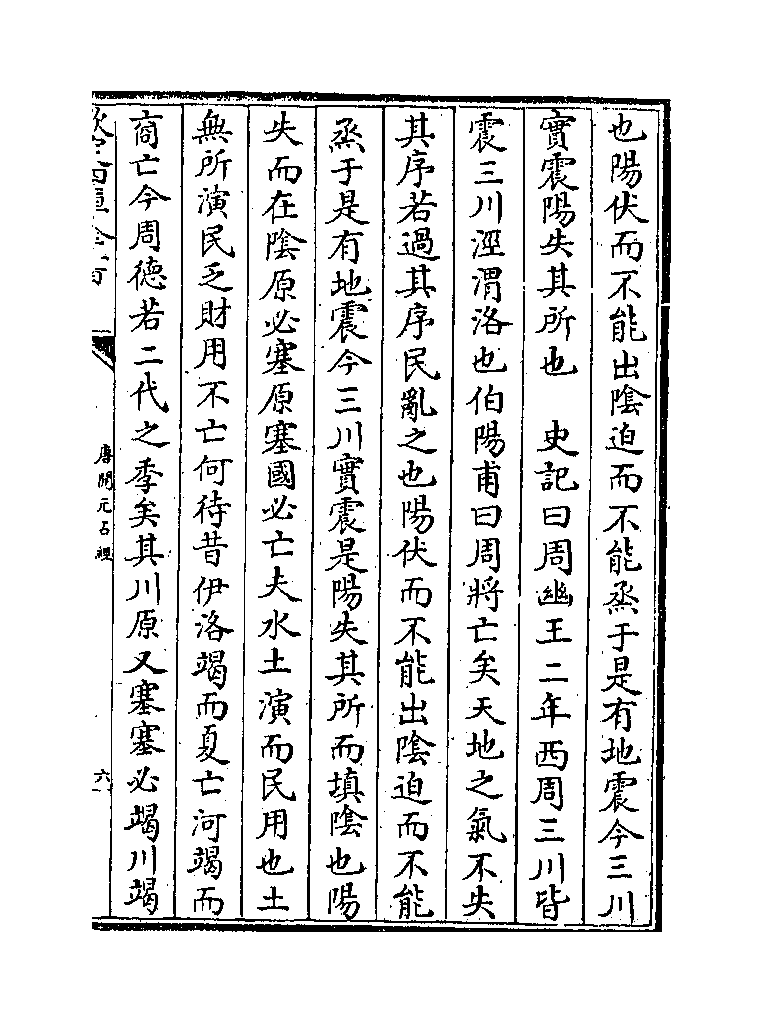 也陽伏而不能出陰迫而不能烝于是有地震今三川
實震陽失其所也　史記曰周幽王二年西周三川皆
震三川涇渭洛也伯陽甫曰周將亡矣天地之氣不失
其序若過其序民亂之也陽伏而不能出陰迫而不能
烝于是有地震今三川實震是陽失其所而填陰也陽
失而在陰原必塞原塞國必亡夫水土演而民用也土
無所演民乏財用不亡何待昔伊洛竭而夏亡河竭而
商亡今周德若二代之季矣其川原又塞塞必竭川竭
唐開元占經
六